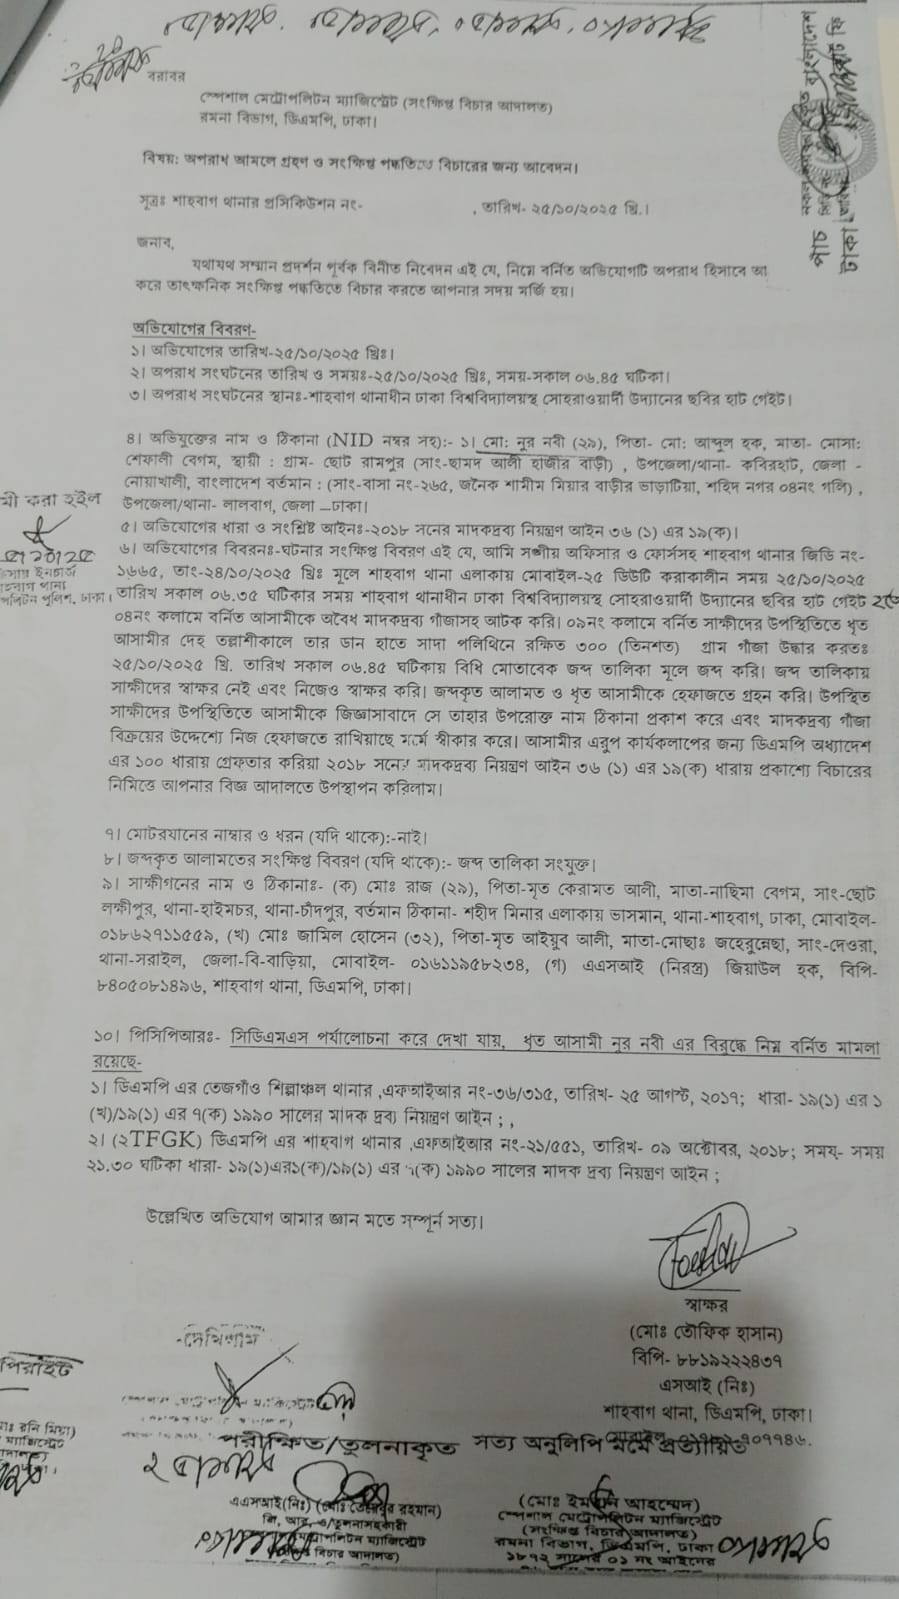 বরাবর
স্পেশাল মেট্রোপলিটন ম্যাজিস্ট্রেট (সংক্ষিপ্ত বিচার আদালত)
রমনা বিভাগ, ডিএমপি, ঢাকা।
বিষয়: অপরাধ আমলে গ্রহণ ও সংক্ষিপ্ত পদ্ধতিতে বিচারের জন্য আবেদন।
সূত্রঃ শাহবাগ থানার প্রসিকিউশন নং- , তারিখ- ২৫/১০/২০২৫ খ্রি.।
জনাব,
যথাযথ সম্মান প্রদর্শন পূর্বক বিনীত নিবেদন এই যে, নিম্নে বর্নিত অভিযোগটি অপরাধ হিসাবে আ
করে তাৎক্ষনিক সংক্ষিপ্ত পদ্ধতিতে বিচার করতে আপনার সদয় মর্জি হয়।
অভিযোগের বিবরণ-
১। অভিযোগের তারিখ-২৫/১০/২০২৫ খ্রিঃ।
২। অপরাধ সংঘটনের তারিখ ও সময়ঃ-২৫/১০/২০২৫ খ্রিঃ, সময়-সকাল ০৬.৪৫ ঘটিকা।
৩। অপরাধ সংঘটনের স্থানঃ-শাহবাগ থানাধীন ঢাকা বিশ্ববিদ্যালয়স্থ সোহরাওয়ার্দী উদ্যানের ছবির হাট গেইট।
৪। অভিযুক্তের নাম ও ঠিকানা (NID নম্বর সহ):- ১। মো: নুর নবী (২৯), পিতা- মো: আব্দুল হক, মাতা- মোসা:
শেফালী বেগম, স্থায়ী : গ্রাম- ছোট রামপুর (সাং-ছামদ আলী হাজীর বাড়ী) , উপজেলা/থানা- কবিরহাট, জেলা -
নোয়াখালী, বাংলাদেশ বর্তমান : (সাং-বাসা নং-২৬৫, জনৈক শামীম মিয়ার বাড়ীর ভাড়াটিয়া, শহিদ নগর ০৪নং গলি) ,
উপজেলা/থানা- লালবাগ, জেলা –ঢাকা।
৫। অভিযোগের ধারা ও সংশ্লিষ্ট আইনঃ-২০১৮ সনের মাদকদ্রব্য নিয়ন্ত্রণ আইন ৩৬ (১) এর ১৯(ক)।
৬। অভিযোগের বিবরনঃ-ঘটনার সংক্ষিপ্ত বিবরণ এই যে, আমি সঙ্গীয় অফিসার ও ফোর্সসহ শাহবাগ থানার জিডি নং-
১৬৬৫, তাং-২৪/১০/২০২৫ খ্রিঃ মূলে শাহবাগ থানা এলাকায় মোবাইল-২৫ ডিউটি করাকালীন সময় ২৫/১০/২০২৫
তারিখ সকাল ০৬.৩৫ ঘটিকার সময় শাহবাগ থানাধীন ঢাকা বিশ্ববিদ্যালয়স্থ সোহরাওয়ার্দী উদ্যানের ছবির হাট গেইট
০৪নং কলামে বর্নিত আসামীকে অবৈধ মাদকদ্রব্য গাঁজাসহ আটক করি। ০৯নং কলামে বর্নিত সাক্ষীদের উপস্থিতিতে ধৃত
আসামীর দেহ তল্লাশীকালে তার ডান হাতে সাদা পলিথিনে রক্ষিত ৩০০ (তিনশত) গ্রাম গাঁজা উদ্ধার করতঃ
২৫/১০/২০২৫ খ্রি. তারিখ সকাল ০৬.৪৫ ঘটিকায় বিধি মোতাবেক জব্দ তালিকা মূলে জব্দ করি। জব্দ তালিকায়
সাক্ষীদের স্বাক্ষর নেই এবং নিজেও স্বাক্ষর করি। জব্দকৃত আলামত ও ধৃত আসামীকে হেফাজতে গ্রহন করি। উপস্থিত
সাক্ষীদের উপস্থিতিতে আসামীকে জিজ্ঞাসাবাদে সে তাহার উপরোক্ত নাম ঠিকানা প্রকাশ করে এবং মাদকদ্রব্য গাঁজা
বিক্রয়ের উদ্দেশ্যে নিজ হেফাজতে রাখিয়াছে মর্মে স্বীকার করে। আসামীর এরুপ কার্যকলাপের জন্য ডিএমপি অধ্যাদেশ
এর ১০০ ধারায় গ্রেফতার করিয়া ২০১৮ সনের মাদকদ্রব্য নিয়ন্ত্রণ আইন ৩৬ (১) এর ১৯(ক) ধারায় প্রকাশ্যে বিচারের
নিমিত্তে আপনার বিজ্ঞ আদালতে উপস্থাপন করিলাম।
মী করা হইল
থানা
পলিটন পুলিশ, ঢাকা।
৭। মোটরযানের নাম্বার ও ধরন (যদি থাকে):-নাই।
৮। জব্দকৃত আলামতের সংক্ষিপ্ত বিবরণ (যদি থাকে):- জব্দ তালিকা সংযুক্ত।
৯। সাক্ষীগনের নাম ও ঠিকানাঃ- (ক) মোঃ রাজ (২৯), পিতা-মৃত কেরামত আলী, মাতা-নাছিমা বেগম, সাং-ছোট
লক্ষীপুর, থানা-হাইমচর, থানা-চাঁদপুর, বর্তমান ঠিকানা- শহীদ মিনার এলাকায় ভাসমান, থানা-শাহবাগ, ঢাকা, মোবাইল-
০১৮৬২৭১১৫৫৯, (খ) মোঃ জামিল হোসেন (৩২), পিতা-মৃত আইয়ুব আলী, মাতা-মোছাঃ জহেরুন্নেছা, সাং-দেওরা,
থানা-সরাইল, জেলা-বি-বাড়িয়া, মোবাইল- ০১৬১১৯৫৮২৩৪, (গ) এএসআই (নিরস্ত্র) জিয়াউল হক, বিপি-
৮৪০৫০৮১৪৯৬, শাহবাগ থানা, ডিএমপি, ঢাকা।
১০। পিসিপিআরঃ- সিডিএমএস পর্যালোচনা করে দেখা যায়, ধৃত আসামী নুর নবী এর বিরুদ্ধে নিম্ন বর্নিত মামলা
রয়েছে-
১। ডিএমপি এর তেজগাঁও শিল্পাঞ্চল থানার ,এফআইআর নং-৩৬/৩১৫, তারিখ- ২৫ আগস্ট, ২০১৭; ধারা- ১৯(১) এর ১
(খ)/১৯(১) এর ৭(ক) ১৯৯০ সালের মাদক দ্রব্য নিয়ন্ত্রণ আইন ; ,
২। (২TFGK) ডিএমপি এর শাহবাগ থানার ,এফআইআর নং-২১/৫৫১, তারিখ- ০৯ অক্টোবর, ২০১৮; সময়- সময়
২১.৩০ ঘটিকা ধারা- ১৯(১)এর১(ক)/১৯(১) এর (ক) ১৯৯০ সালের মাদক দ্রব্য নিয়ন্ত্রণ আইন ;
উল্লেখিত অভিযোগ আমার জ্ঞান মতে সম্পূর্ন সত্য।
স্বাক্ষর
(মোঃ তৌফিক হাসান)
বিপি- ৮৮১৯২২২৪৩৭
এসআই (নিঃ)
শাহবাগ থানা, ডিএমপি, ঢাকা।
দেখিলাম
পরীক্ষিত/তুলনাকৃত সত্য অনুলিপি মর্মে প্রত্যায়িত
(মোঃ ইমরান আহম্মেদ)
স্পেশাল মেট্রোপলিটন ম্যাজিস্ট্রেট
(সংক্ষিপ্ত বিচার আদালত)
রমনা বিভাগ, ডিএমপি, ঢাকা
১৮৭২ সালের ০১ নং আইনের